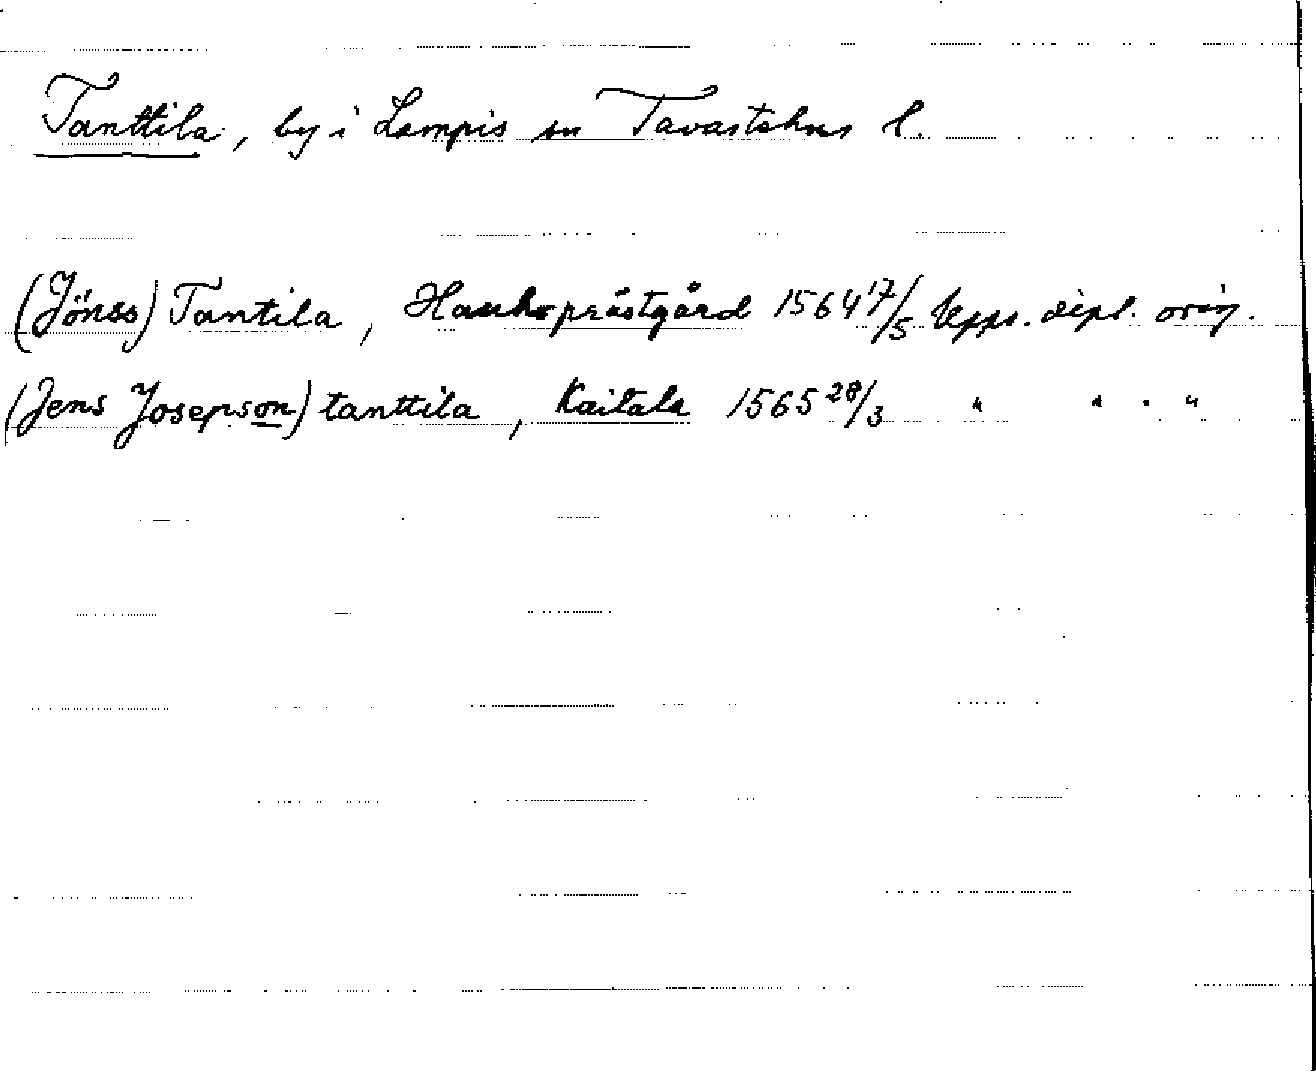 Tanttila, by i Lampis sn Tavastehus l.
(Jönss) Tantila, Hauho prästgård 1564 17/5 Upps. dipl. orig.
(Jens Josepson) tanttila, Kaitala 1565 28/3 " " . "